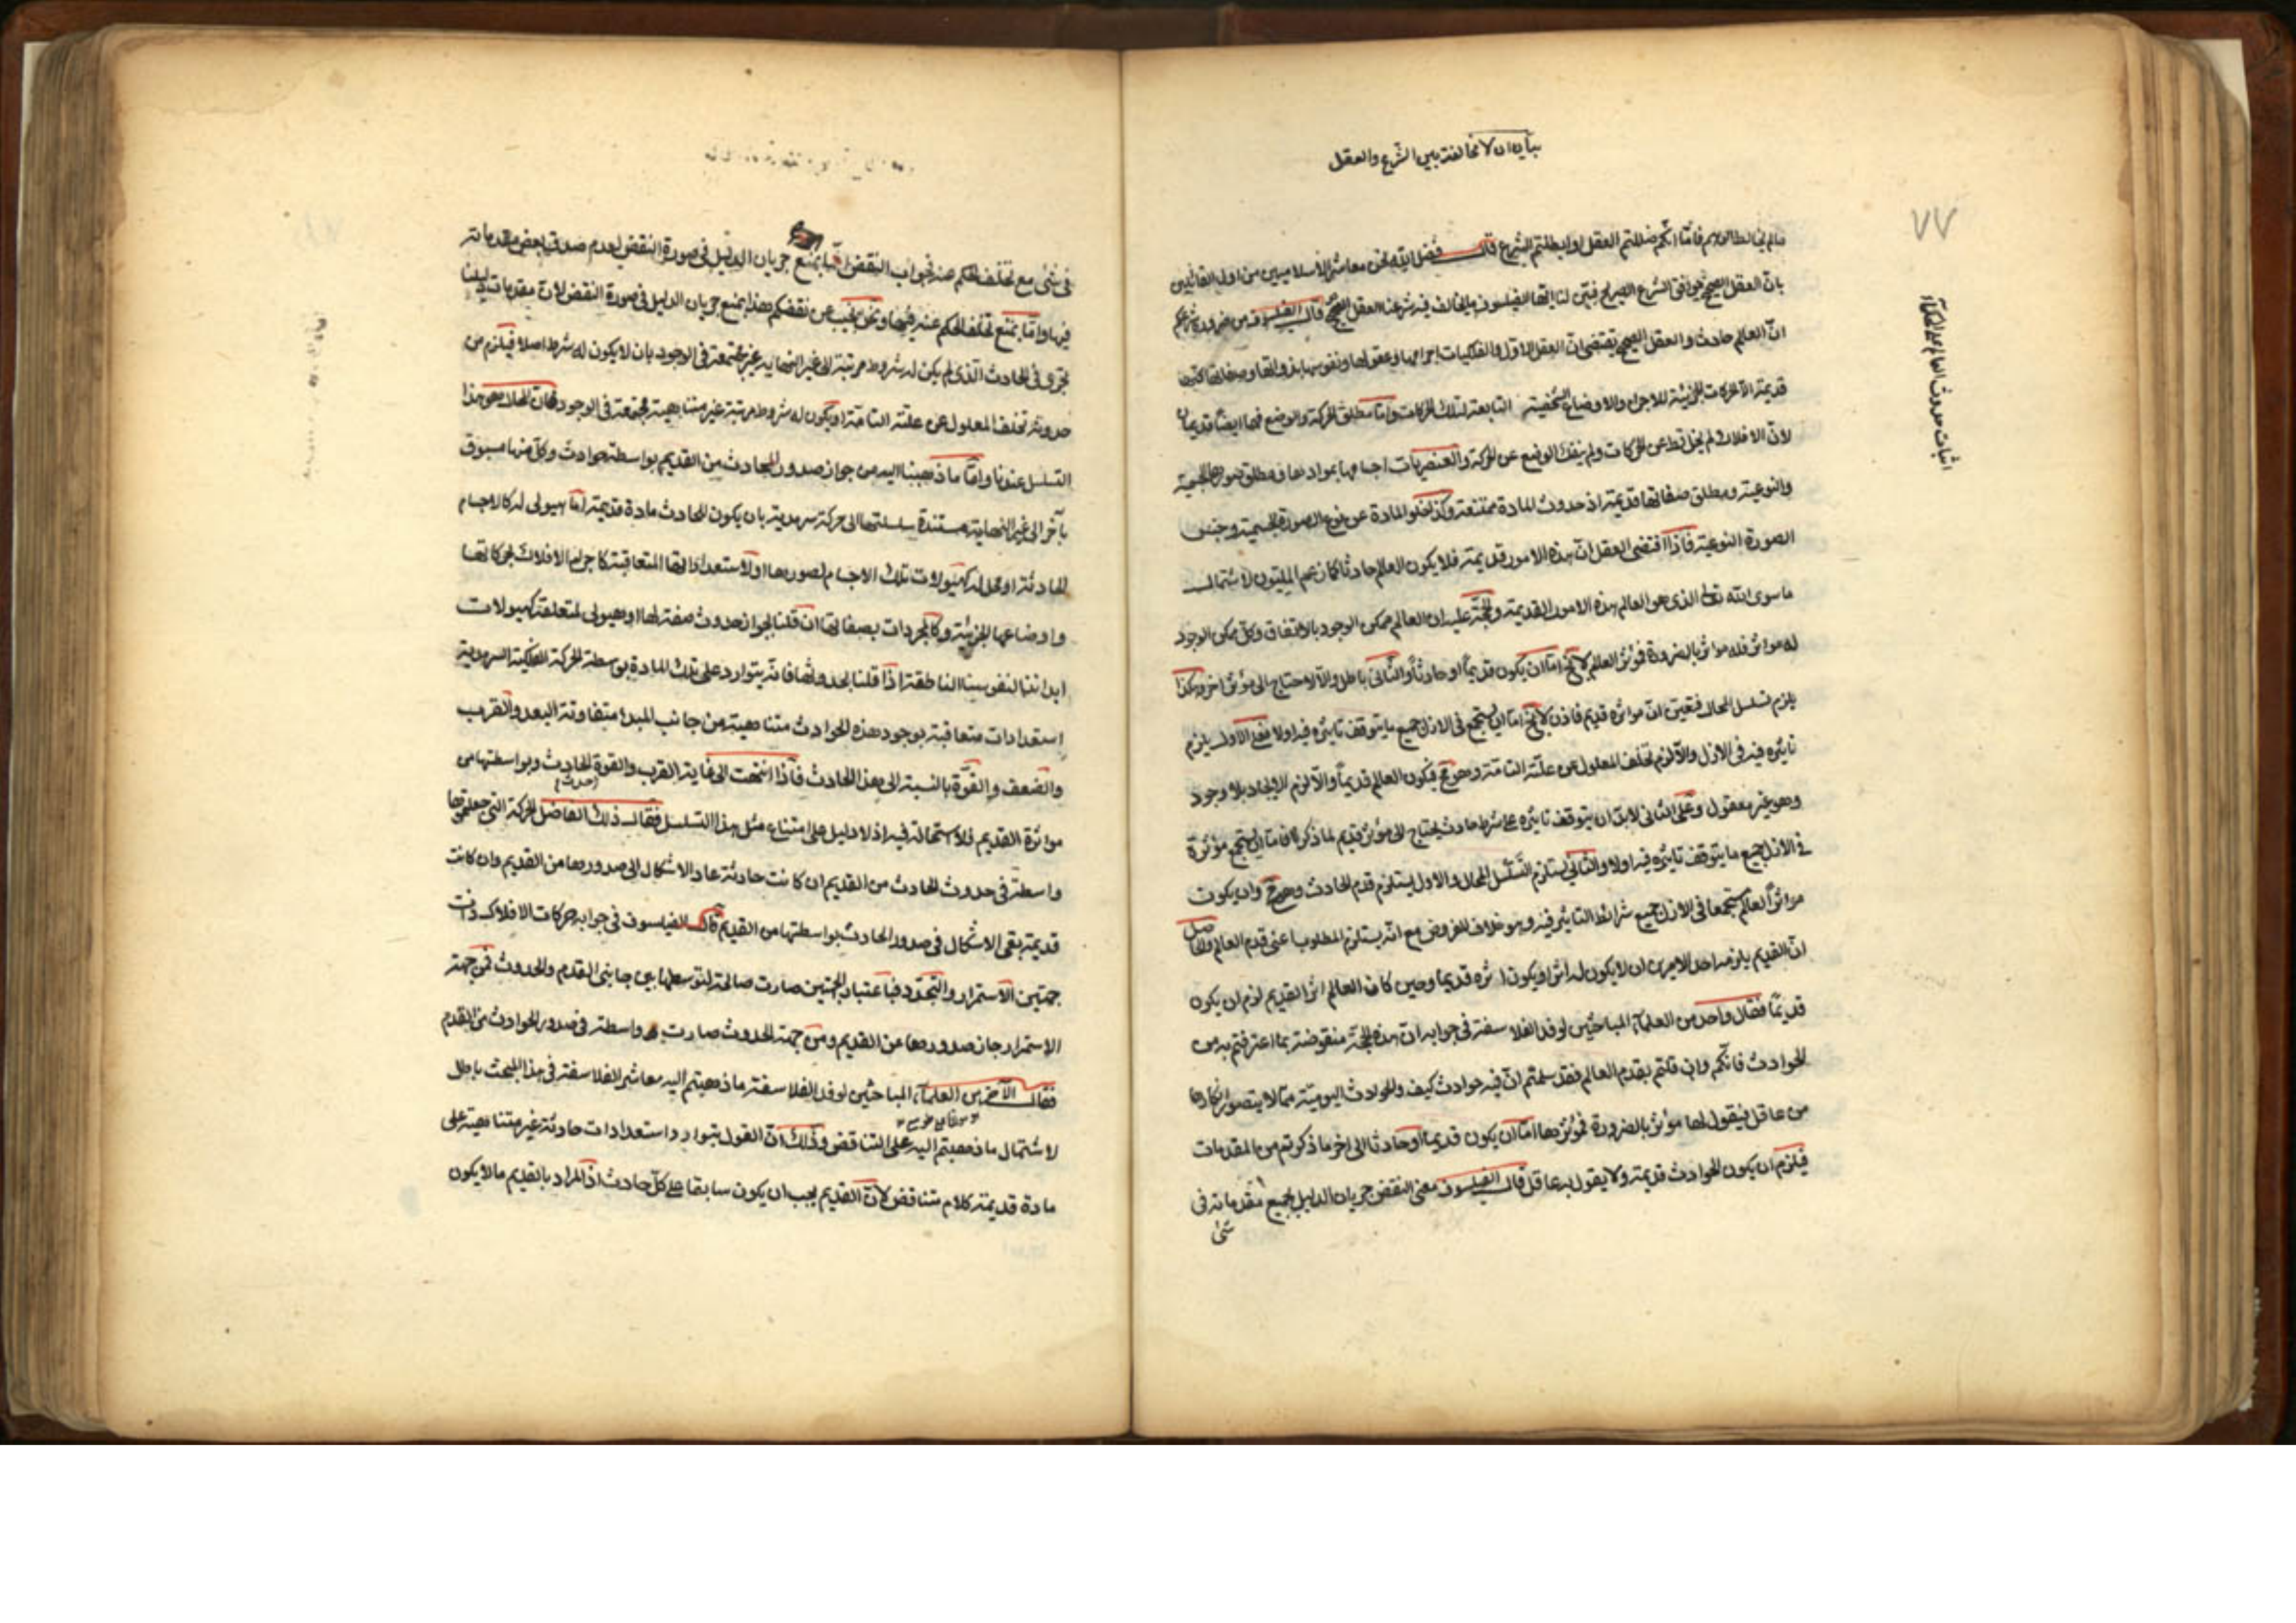 بيان ان لا مخالفة بين الشرع والعقل
٧٧
اثبات حدوث العالم على الحكماء
فاما انكم ضللتم العقل او ابطلتم الشرع قال فضل الله نحن معاشر الاسلاميين من اول القائلين
بان العقل الصحيح يوافق الشرع الصريح فبين لنا ايها الفيلسوف ما يخالف فيه شرعنا العقل الصحيح قال الفيلسوف من ضرورة شرعكم
ان العالم حادث والعقل الصحيح يقتضى ان العقل الاول والفلكيات اجرامها وعقولها ونفوسها بذواتها وصفاتها كلها
قديمة الا الحركات الجزئية للاجرام والاوضاع الشخصية التابعة لتلك الحركات واما مطلق الحركة والوضع فهما ايضا قديمان
لان الافلاك لم يخل قط عن الحركات ولم ينفك الوضع عن الحركة والعنصريات اجسامها بموادها ومطلق صورها الجسمية
والنوعية ومطلق صفاتها قديمة اذ حدوث المادة ممتنعة وكذا خلو المادة عن نوع الصورة الجسمية وجنس
الصورة النوعية فاذا اقتضى العقل ان هذه الامور قديمة فلا يكون العالم حادثا كما زعم المليون لاشتمال
ما سوى الله تعالى الذى هو العالم هذه الامور القديمة والحجة عليه ان العالم ممكن الوجود بالاتفاق وكل ممكن الوجود
له مؤثر فله مؤثر بالضرورة فمؤثر العالم لا يخ اما ان يكون قديما او حادثا والثانى باطل والا لاحتاج الى مؤثر اخر وهكذا
يلزم تسلسل المحال فتعين ان مؤثره قديم فاذن لا يخ اما ان يستجمع فى الازل جميع ما يتوقف تاثيره فيه اولا فعلى الاول يلزم
تاثيره فيه فى الازل والا لزم تخلف المعلول عن علته التامة وهو مح فيكون العالم قديما والا لزم الايجاد بلا وجود
وهو غير معقول وعلى الثانى لا بد ان يتوقف تاثيره على شرط حادث يحتاج الى مؤثر قديم لما ذكر فاما ان يستجمع مؤثره
فى الازل جميع ما يتوقف تاثيره فيه اولا والثانى يستلزم التسلسل المحال والاول يستلزم قدم الحادث وهو مح وان يكون
مؤثر العالم مستجمعا فى الازل جميع شرائط التاثير فيه وهو خلاف المفروض مع انه يستلزم المطلوب اعنى قدم العالم والحاصل
ان القديم يلزمه احد الامرين ان لا يكون له اثر او يكون اثره قديما وحين كان العالم اثر القديم لزم ان يكون
قديما فقال واحد من العلماء المباحثين لوفد الفلاسفة فى جوابه ان هذه الحجة منقوضة بما اعترفتم به من
الحوادث فانكم وان قلتم بقدم العالم فقد سلمتم ان فيه حوادث كيف والحوادث اليومية مما لا يتصور انكارها
من عاقل فيقول لها مؤثر بالضرورة فمؤثرها اما ان يكون قديما او حادثا الى اخر ما ذكرتم من المقدمات
فيلزم ان يكون الحوادث قديمة ولا يقول به عاقل قال الفيلسوف معنى النقض جريان الدليل بجميع مقدماته فى
شئ
فى شئ مع تخلف الحكم عنه فجواب النقض اما بمنع جريان الدليل فى صورة النقض لعدم صدق بعض مقدماته
فيها واما بمنع تخلف الحكم عنه فيها ونحن نجيب عن نقضكم هذا بمنع جريان الدليل فى صورة النقض لان مقدمات دليلنا
تجرى فى الحادث الذى لم يكن له شروط مرتبة الى غير النهاية غير مجتمعة فى الوجود بان لا يكون له شرط اصلا فيلزم من
حدوثه تخلف المعلول عن علته التامة او يكون له شروط مرتبة غير متناهية مجتمعة فى الوجود فان المحال هو هذا
التسلسل عندنا واما ما ذهبنا اليه من جواز صدور الحادث من القديم بواسطة حوادث وكل منها مسبوق
باخر الى غير النهاية مستندة سلسلتها الى حركة سرمدية بان يكون للحادث مادة قديمة اما هيولى له كالاجسام
الحادثة او محل له كهيولات تلك الاجسام لصورها او لاستعداداتها المتعاقبة كاجرام الافلاك لحركاتها
واوضاعها الجزئية وكالمجردات بصفاتها ان قلنا بجواز حدوث صفة لها او هيولى لمتعلقه كهيولات
ابداننا لنفوسنا الناطقة اذا قلنا بحدوثها فانه يتوارد على تلك المادة بوسطة الحركة الفلكية السرمدية
استعدادات متعاقبة بوجود هذه الحوادث متناهية من جانب المبدء متفاوتة البعد والقرب
والضعف والقوة بالنسبة الى هذا الحادث فاذا انتهت الى غاية القرب والقوة الحادث وبواسطتها من
(حدث)
مؤثره القديم فلا استحالة فيه اذ لا دليل على امتناع مثل هذا التسلسل فقال ذلك الفاضل الحركة التى جعلتموها
واسطة فى حدوث الحادث من القديم ان كانت حادثة عاد الاشكال الى صدورها من القديم وان كانت
قديمة بقى الاشكال فى صدور الحادث بواسطتها من القديم قال الفيلسوف فى جوابه حركات الافلاك ذات
جهتين الاستمرار والتجدد فباعتبار الجهتين صارت صالحة لتوسطها بين جانبى القدم والحدوث فمن جهة
الاستمرار جاز صدورها عن القديم ومن جهة الحدوث صارت واسطة فى صدور الحوادث من القدم
فقال الآخر من العلماء المباحثين لوفد الفلاسفة ما ذهبتم اليه معاشر الفلاسفة فى هذا المبحث باطل
لاشتمال ما ذهبتم اليه على التناقض وذلك ان القول بتوارد استعدادات حادثة غير متناهية على
مادة قديمة كلام متناقض لان القديم يجب ان يكون سابقا على كل حادث اذ المراد بالقديم ما لا يكون